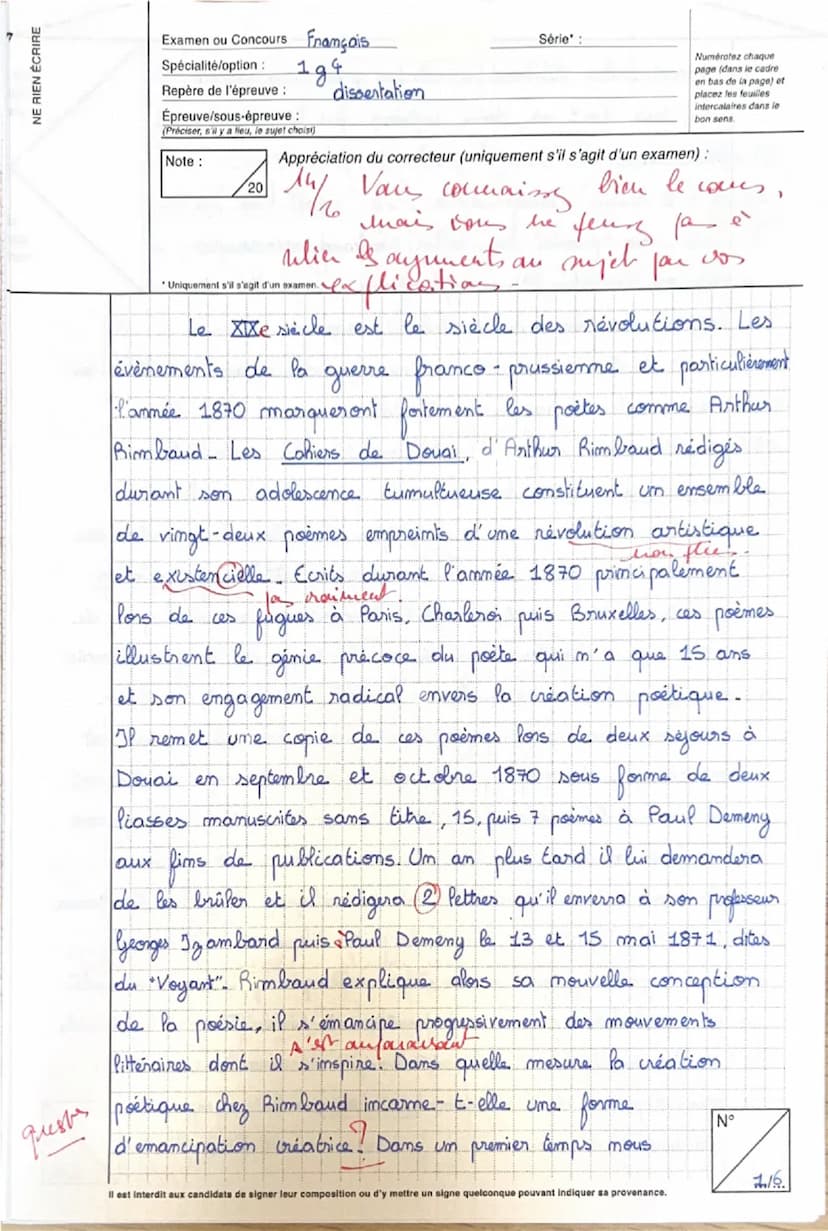 7
NE RIEN ÉCRIRE
Examen ou Concours Français Série* :
Spécialité/option : 1g4
Repère de l'épreuve : dissertation
Épreuve/sous-épreuve :
(Préciser, s'il y a lieu, le sujet choisi)
Numérotez chaque
page (dans le cadre
en bas de la page) et
placez les feuilles
intercalaires dans le
bon sens.
Note :
20
Appréciation du correcteur (uniquement s'il s'agit d'un examen) :
14/20 Vous connaissez bien le cours,
mais vous ne pensez pas à
relier les arguments au sujet par vos
explications.
* Uniquement s'il s'agit d'un examen.
Le XIXe siècle est le siècle des révolutions. Les
évènements de la guerre franco-prussienne et particulièrement
l'année 1870 marqueront fortement les poètes comme Arthur
Rimbaud. Les Cahiers de Douai, d'Arthur Rimbaud rédigés
durant son adolescence tumultueuse constituent un ensemble
de vingt-deux poèmes empreints d'une révolution artistique
non plus.
et existencielle. Ecrits durant l'année 1870 principalement
pas vraiment.
lors de ces fugues à Paris, Charleroi puis Bruxelles, ces poèmes
illustrent le génie précoce du poète qui n'a que 15 ans
et son engagement radical envers la création poétique.
Il remet une copie de ces poèmes lors de deux séjours à
Douai en septembre et octobre 1870 sous forme de deux
liasses manuscrites sans titre, 15, puis 7 poèmes à Paul Demeny
aux fins de publications. Un an plus tard il lui demandera
de les brûler et il rédigera 2 lettres qu'il enverra à son professeur
Georges Izambard puis Paul Demeny le 13 et 15 mai 1871, dites
du "Voyant". Rimbaud explique alors sa nouvelle conception
de la poésie, il s'émancipe progressivement des mouvements
c'est auparavant
littéraires dont il s'inspire. Dans quelle mesure la création
poétique chez Rimbaud incarne-t-elle une forme
d'emancipation créatrice ? Dans un premier temps nous
N°
1/6
Il est interdit aux candidats de signer leur composition ou d'y mettre un signe quelconque pouvant indiquer sa provenance.